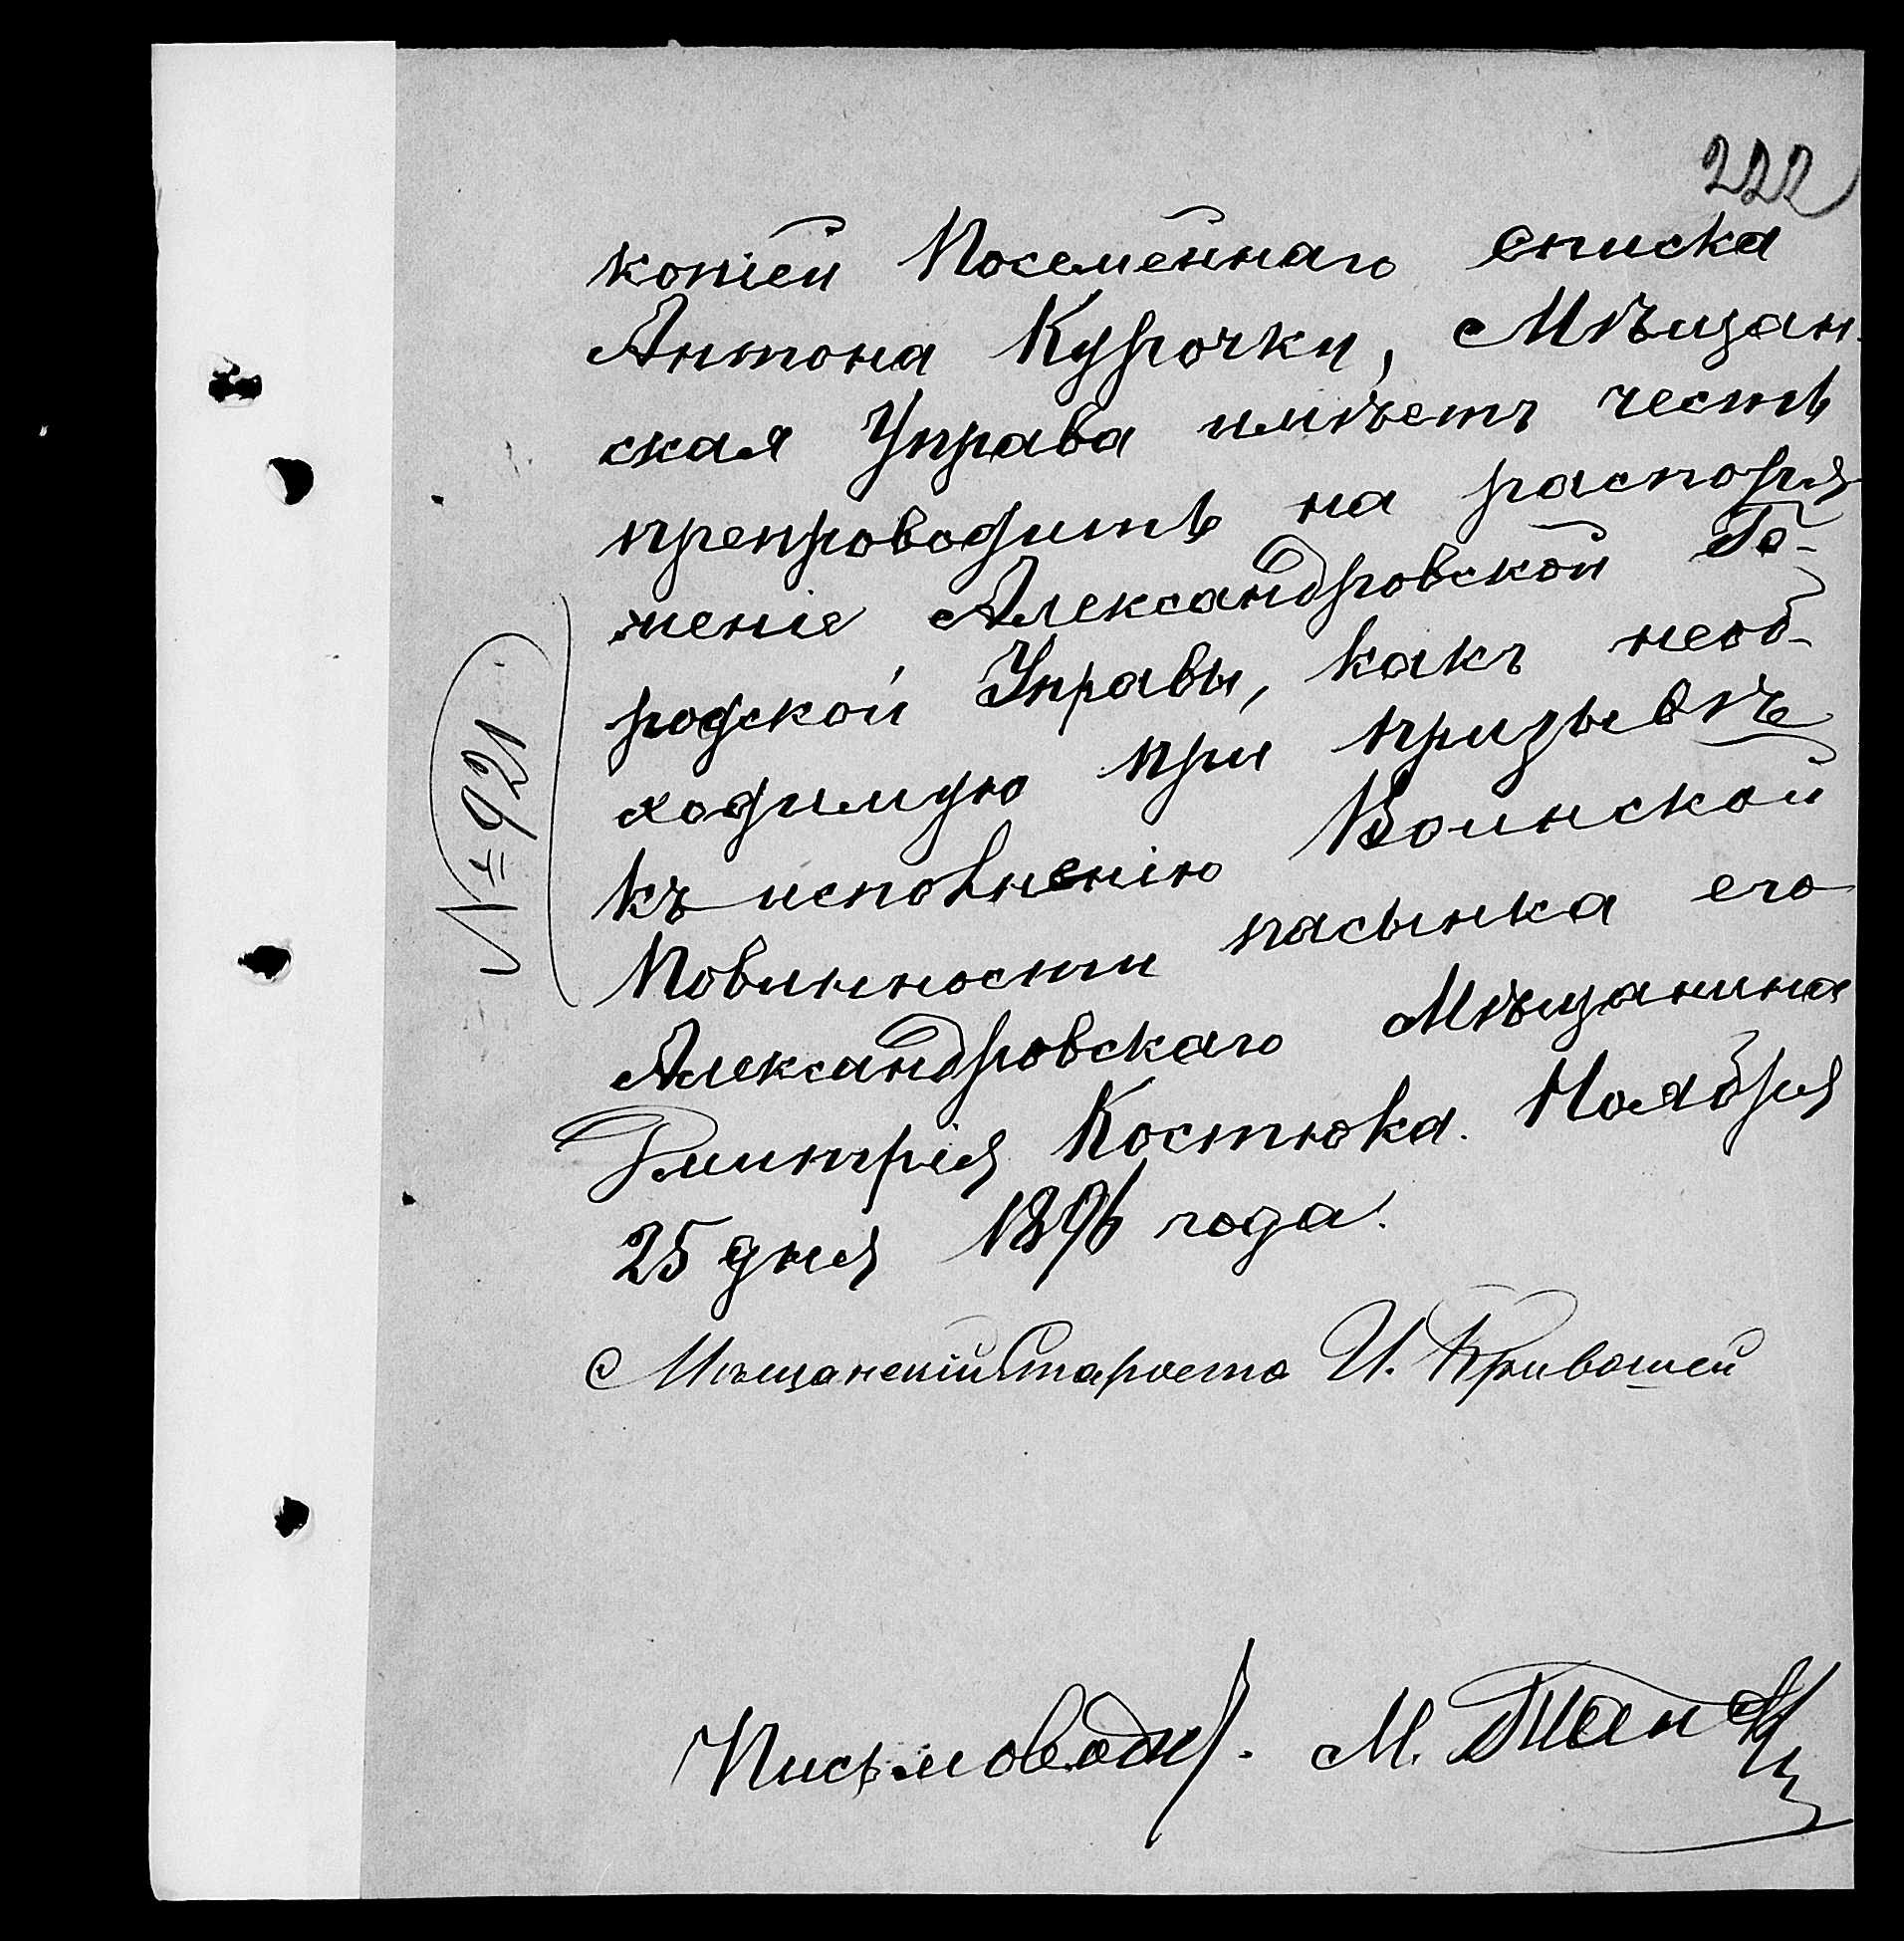 222
копіей Посемейнаго списка
Антона Курочки, Мѣщан-
ская Управа имѣетъ честь
препроводить на распоря
женіе Александровской Го-
родской Управы, какъ необ-
ходимую при призывѣ
къ исполненію Воинской
Повинности пасынка его
Александровскаго Мѣщанина
Дмитрія Костюка. Ноября
25 дня 1896 года.
№ 921
Мѣщанскій Староста И. Кривошей
Письмовод. М.